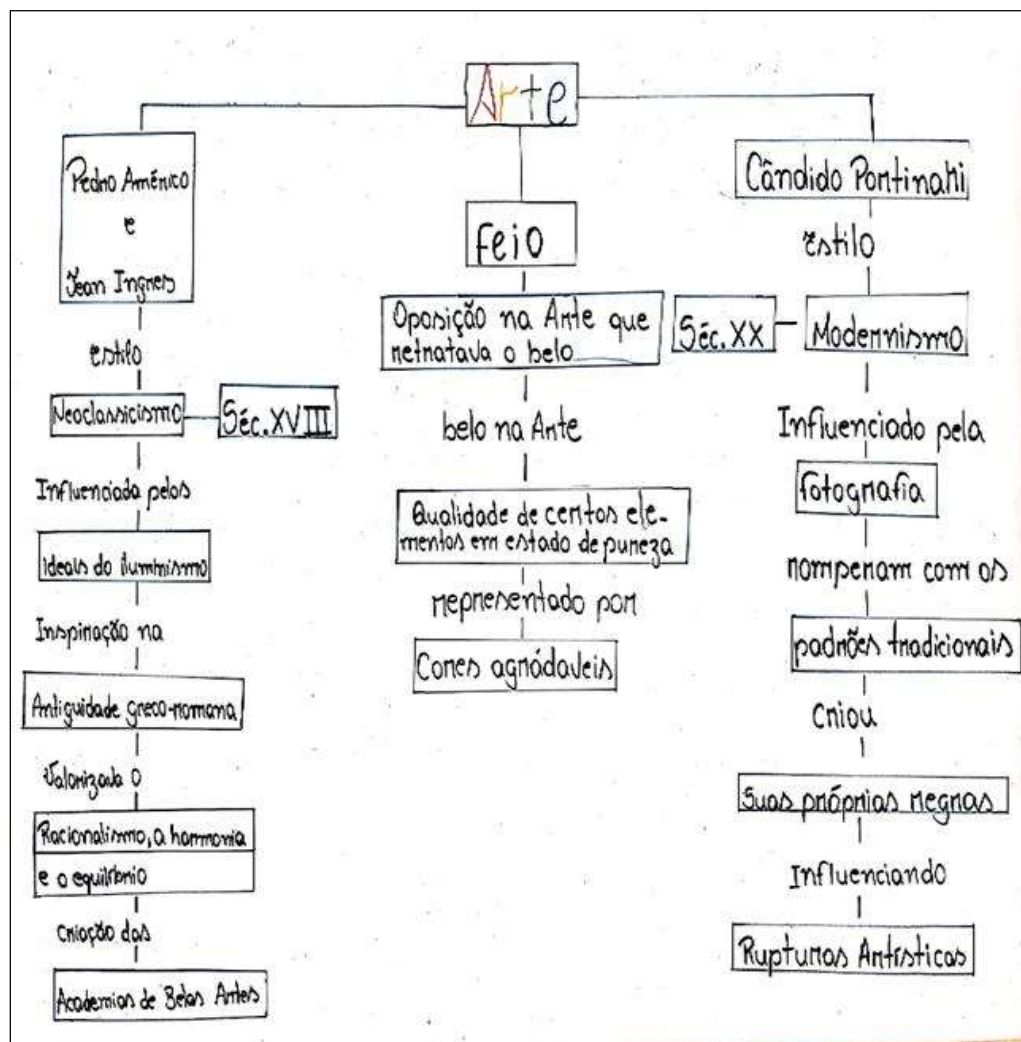 Arte
Pedro Américo
e
Jean Ingres
estilo
Neoclassicismo
Séc. XVIII
Influenciada pelos
ideais do iluminismo
Inspiração na
Antiguidade greco-romana
Valorizava o
Racionalismo, a harmonia
e o equilíbrio
criação das
Academias de Belas Artes
Feio
Oposição na Arte que
retratava o belo
belo na Arte
Qualidade de certos ele-
mentos em estado de pureza
representado por
Cores agrádaveis
Cândido Portinari
Estilo
Séc. XX
Modernismo
Influenciado pela
fotografia
romperam com os
padrões tradicionais
criou
Suas próprias regras
Influenciando
Rupturas Artísticas